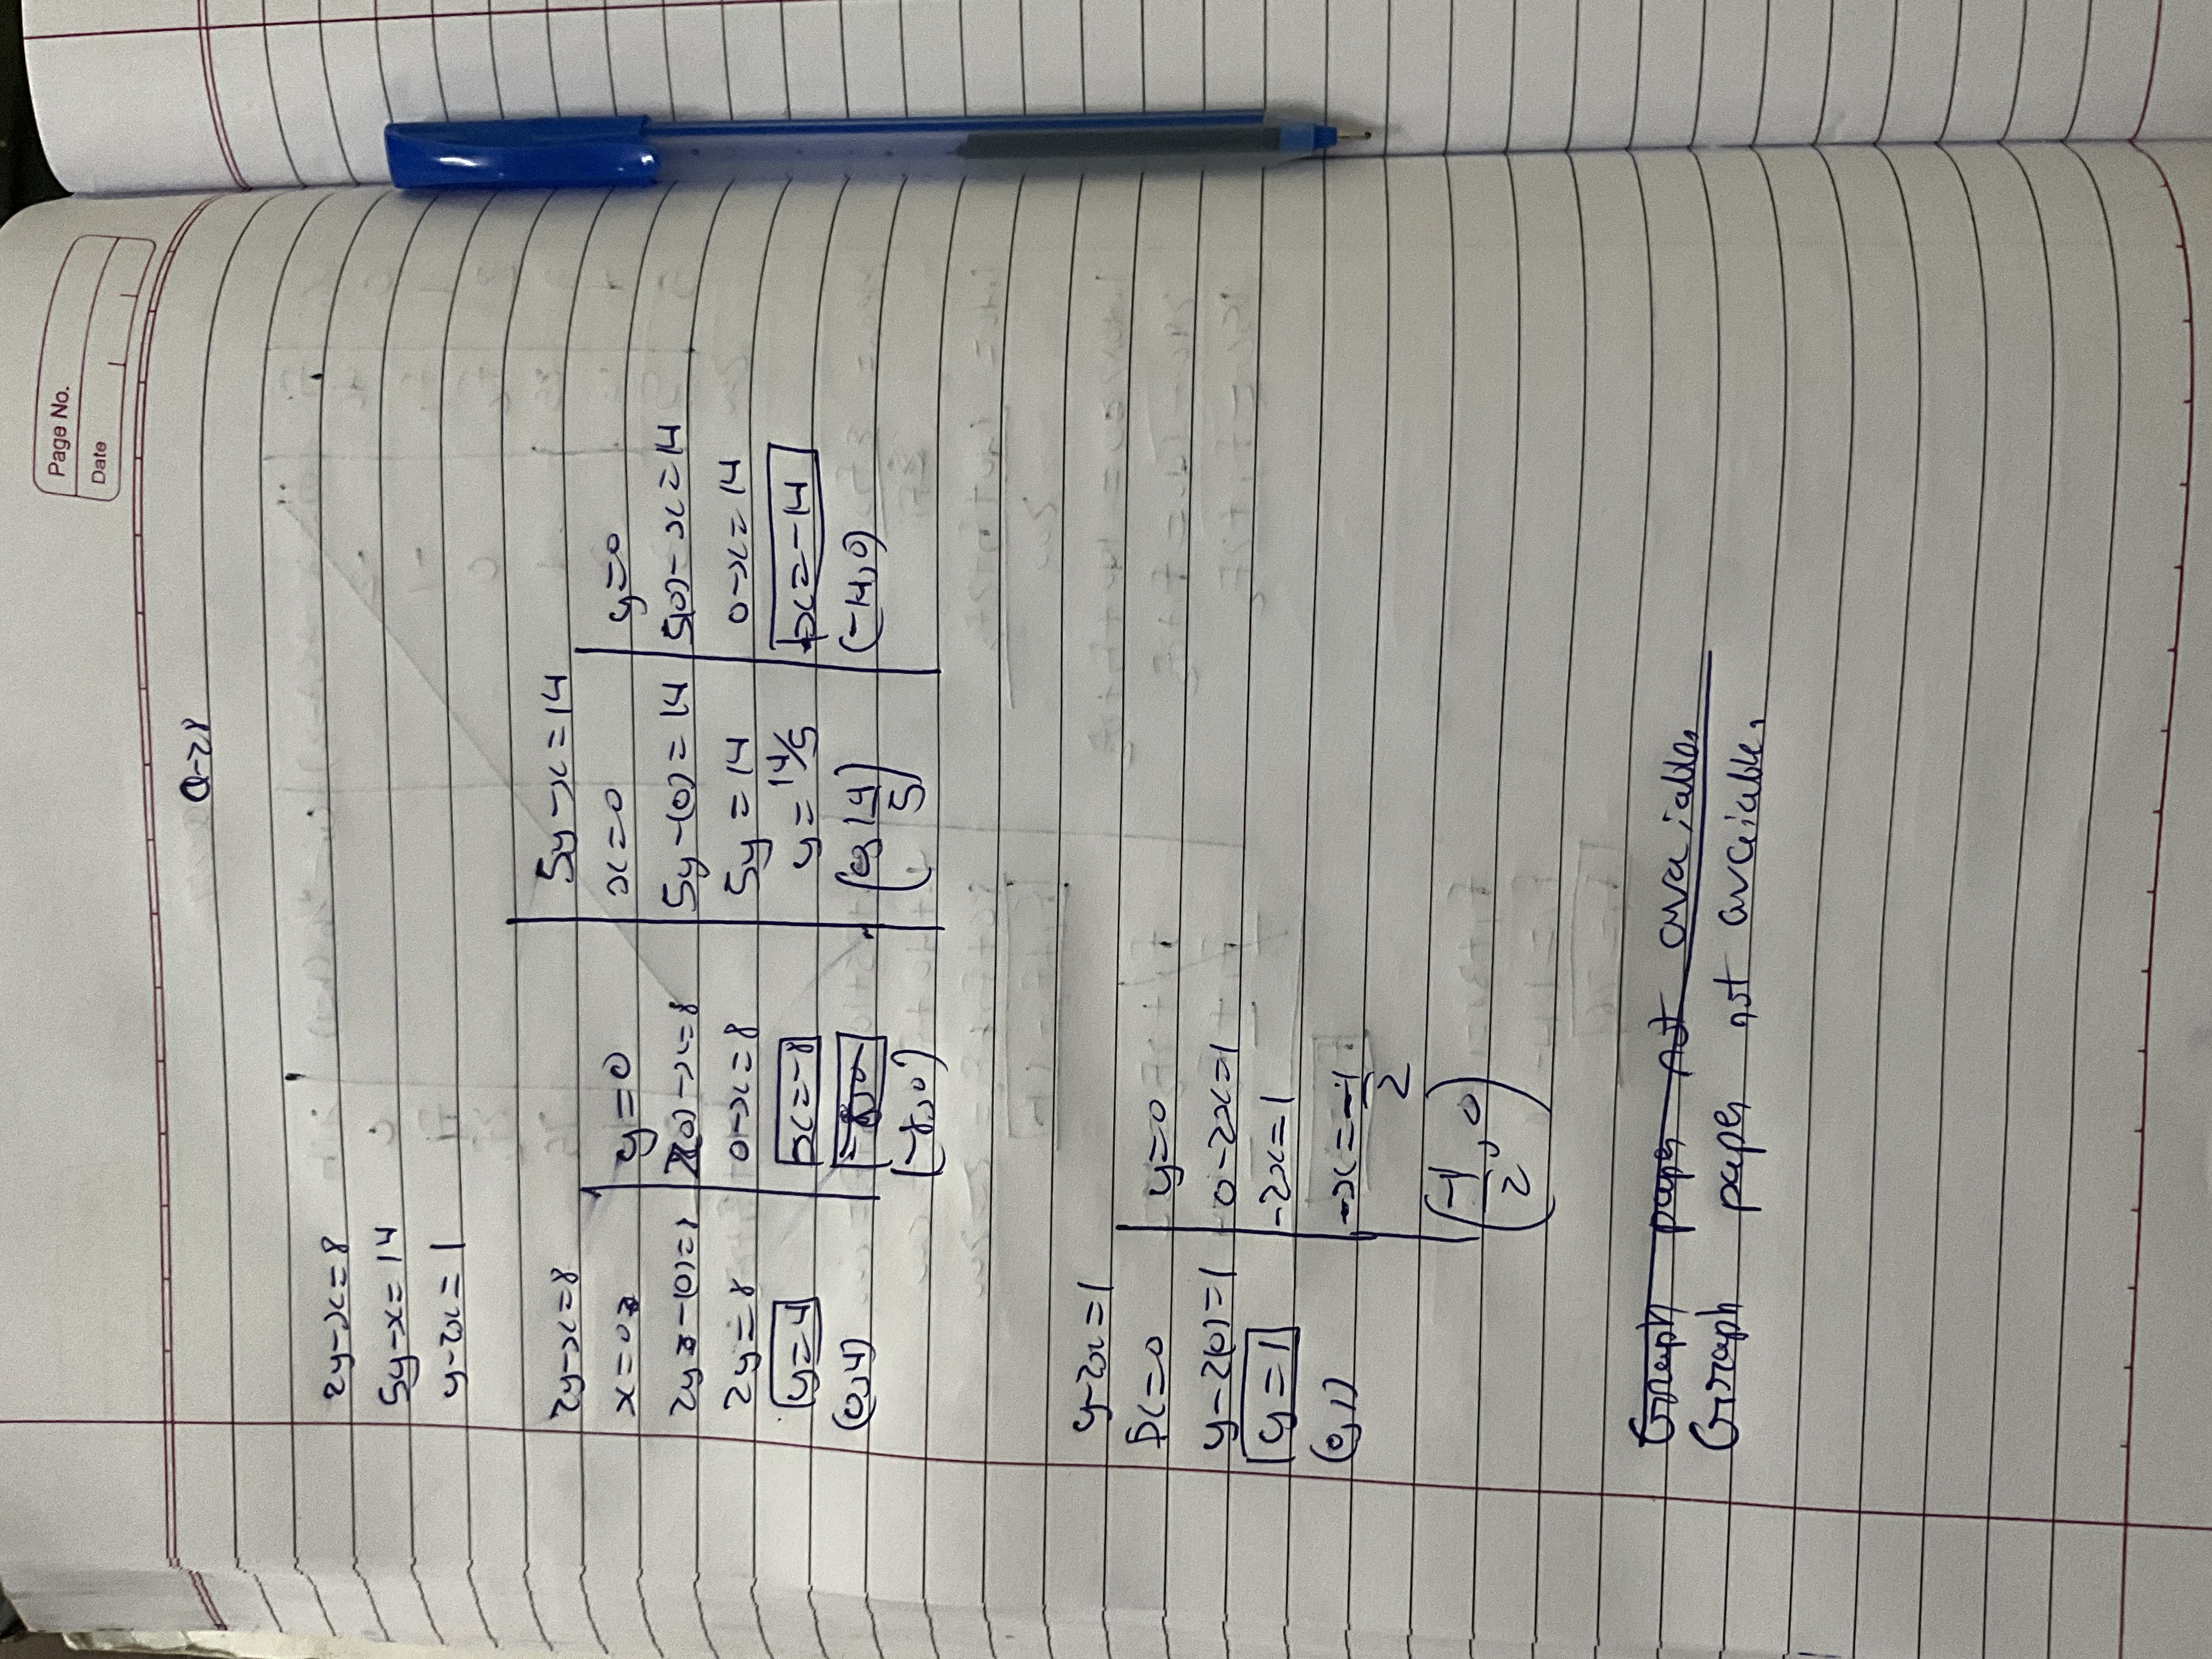 Page No.
Date
Q-28
2y-x=8
5y-x=14
y-2x=1
2y-x=8
x=0
2y-(0)=8
2y=8
y=4
(0,4)
y=0
2(0)-x=8
0-x=8
x=-8
(-8,0)
5y-x=14
x=0
5y-(0)=14
5y=14
y=14/5
(0,14/5)
y=0
5(0)-x=14
0-x=14
x=-14
(-14,0)
y-2x=1
x=0
y-2(0)=1
y=1
(0,1)
y=0
0-2x=1
-2x=1
x=-1/2
(-1/2,0)
Graph paper not avaiable.
Graph paper not avaiable.